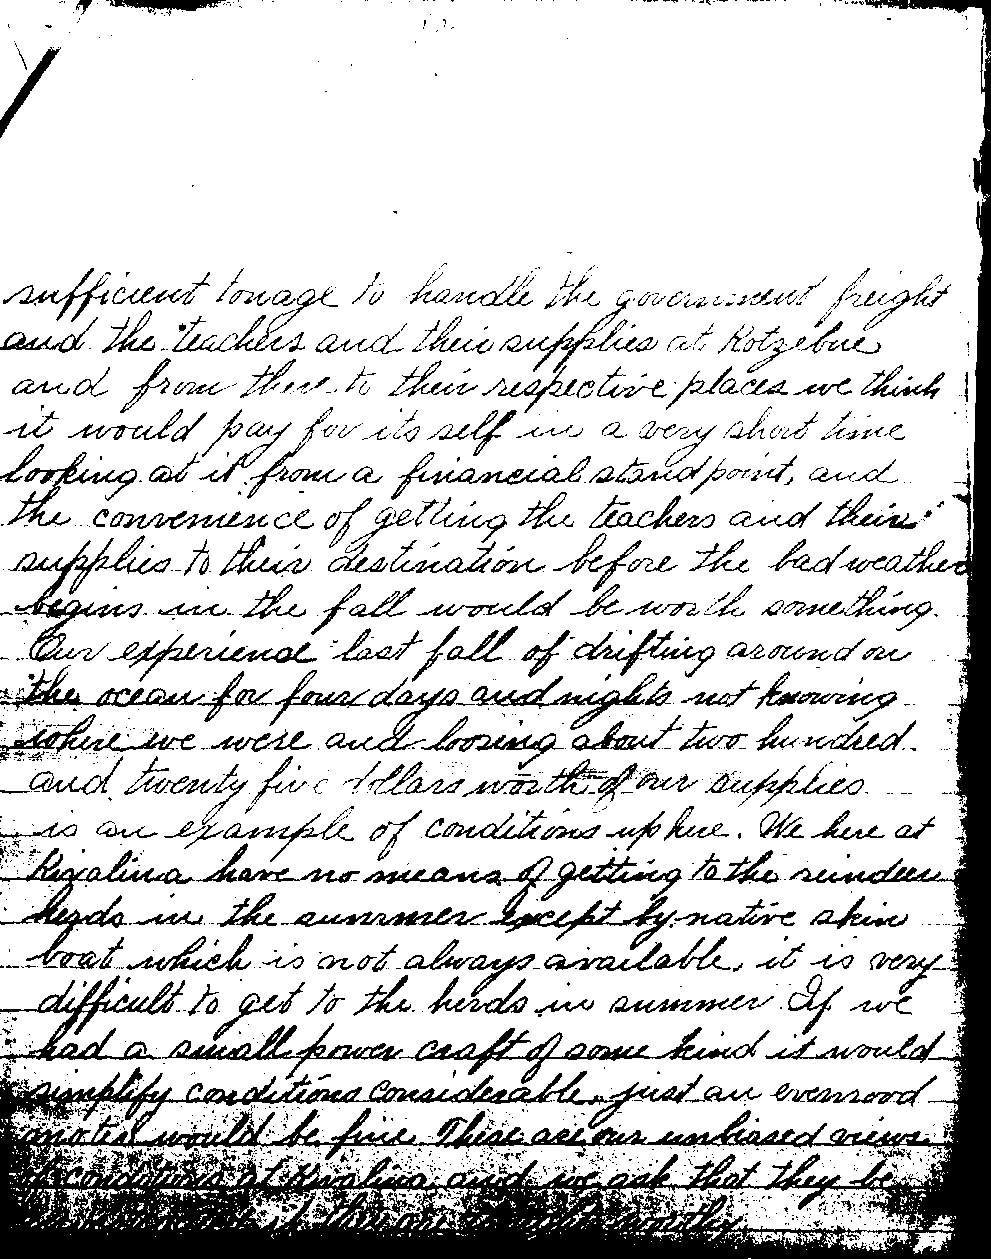 sufficient tonage to handle the government freight
and the teachers and their supplies at Kotzebue
and from there to their respective places we think
it would pay for its self in a very short time
looking at it from a financial standpoint, and
the convenience of getting the teachers and their
supplies to their destination before the bad weather
begins in the fall would be worth something.
Our experience last fall of drifting around on
the ocean for four days and nights not knowing
where we were and loosing about two hundred
and twenty five dollars worth of our supplies
is an example of conditions up here. We here at
Kivalina have no means of getting to the reindeer
herds in the summer except by native skin
boat which is not always available, it is very
difficult to get to the herds in summer If we
had a small power craft of some kind it would
simplify conditions considerable, just an evenrood
motor would be fine. These are our unbiased views
of conditions at Kivalina and we ask that they be
if they are worthy